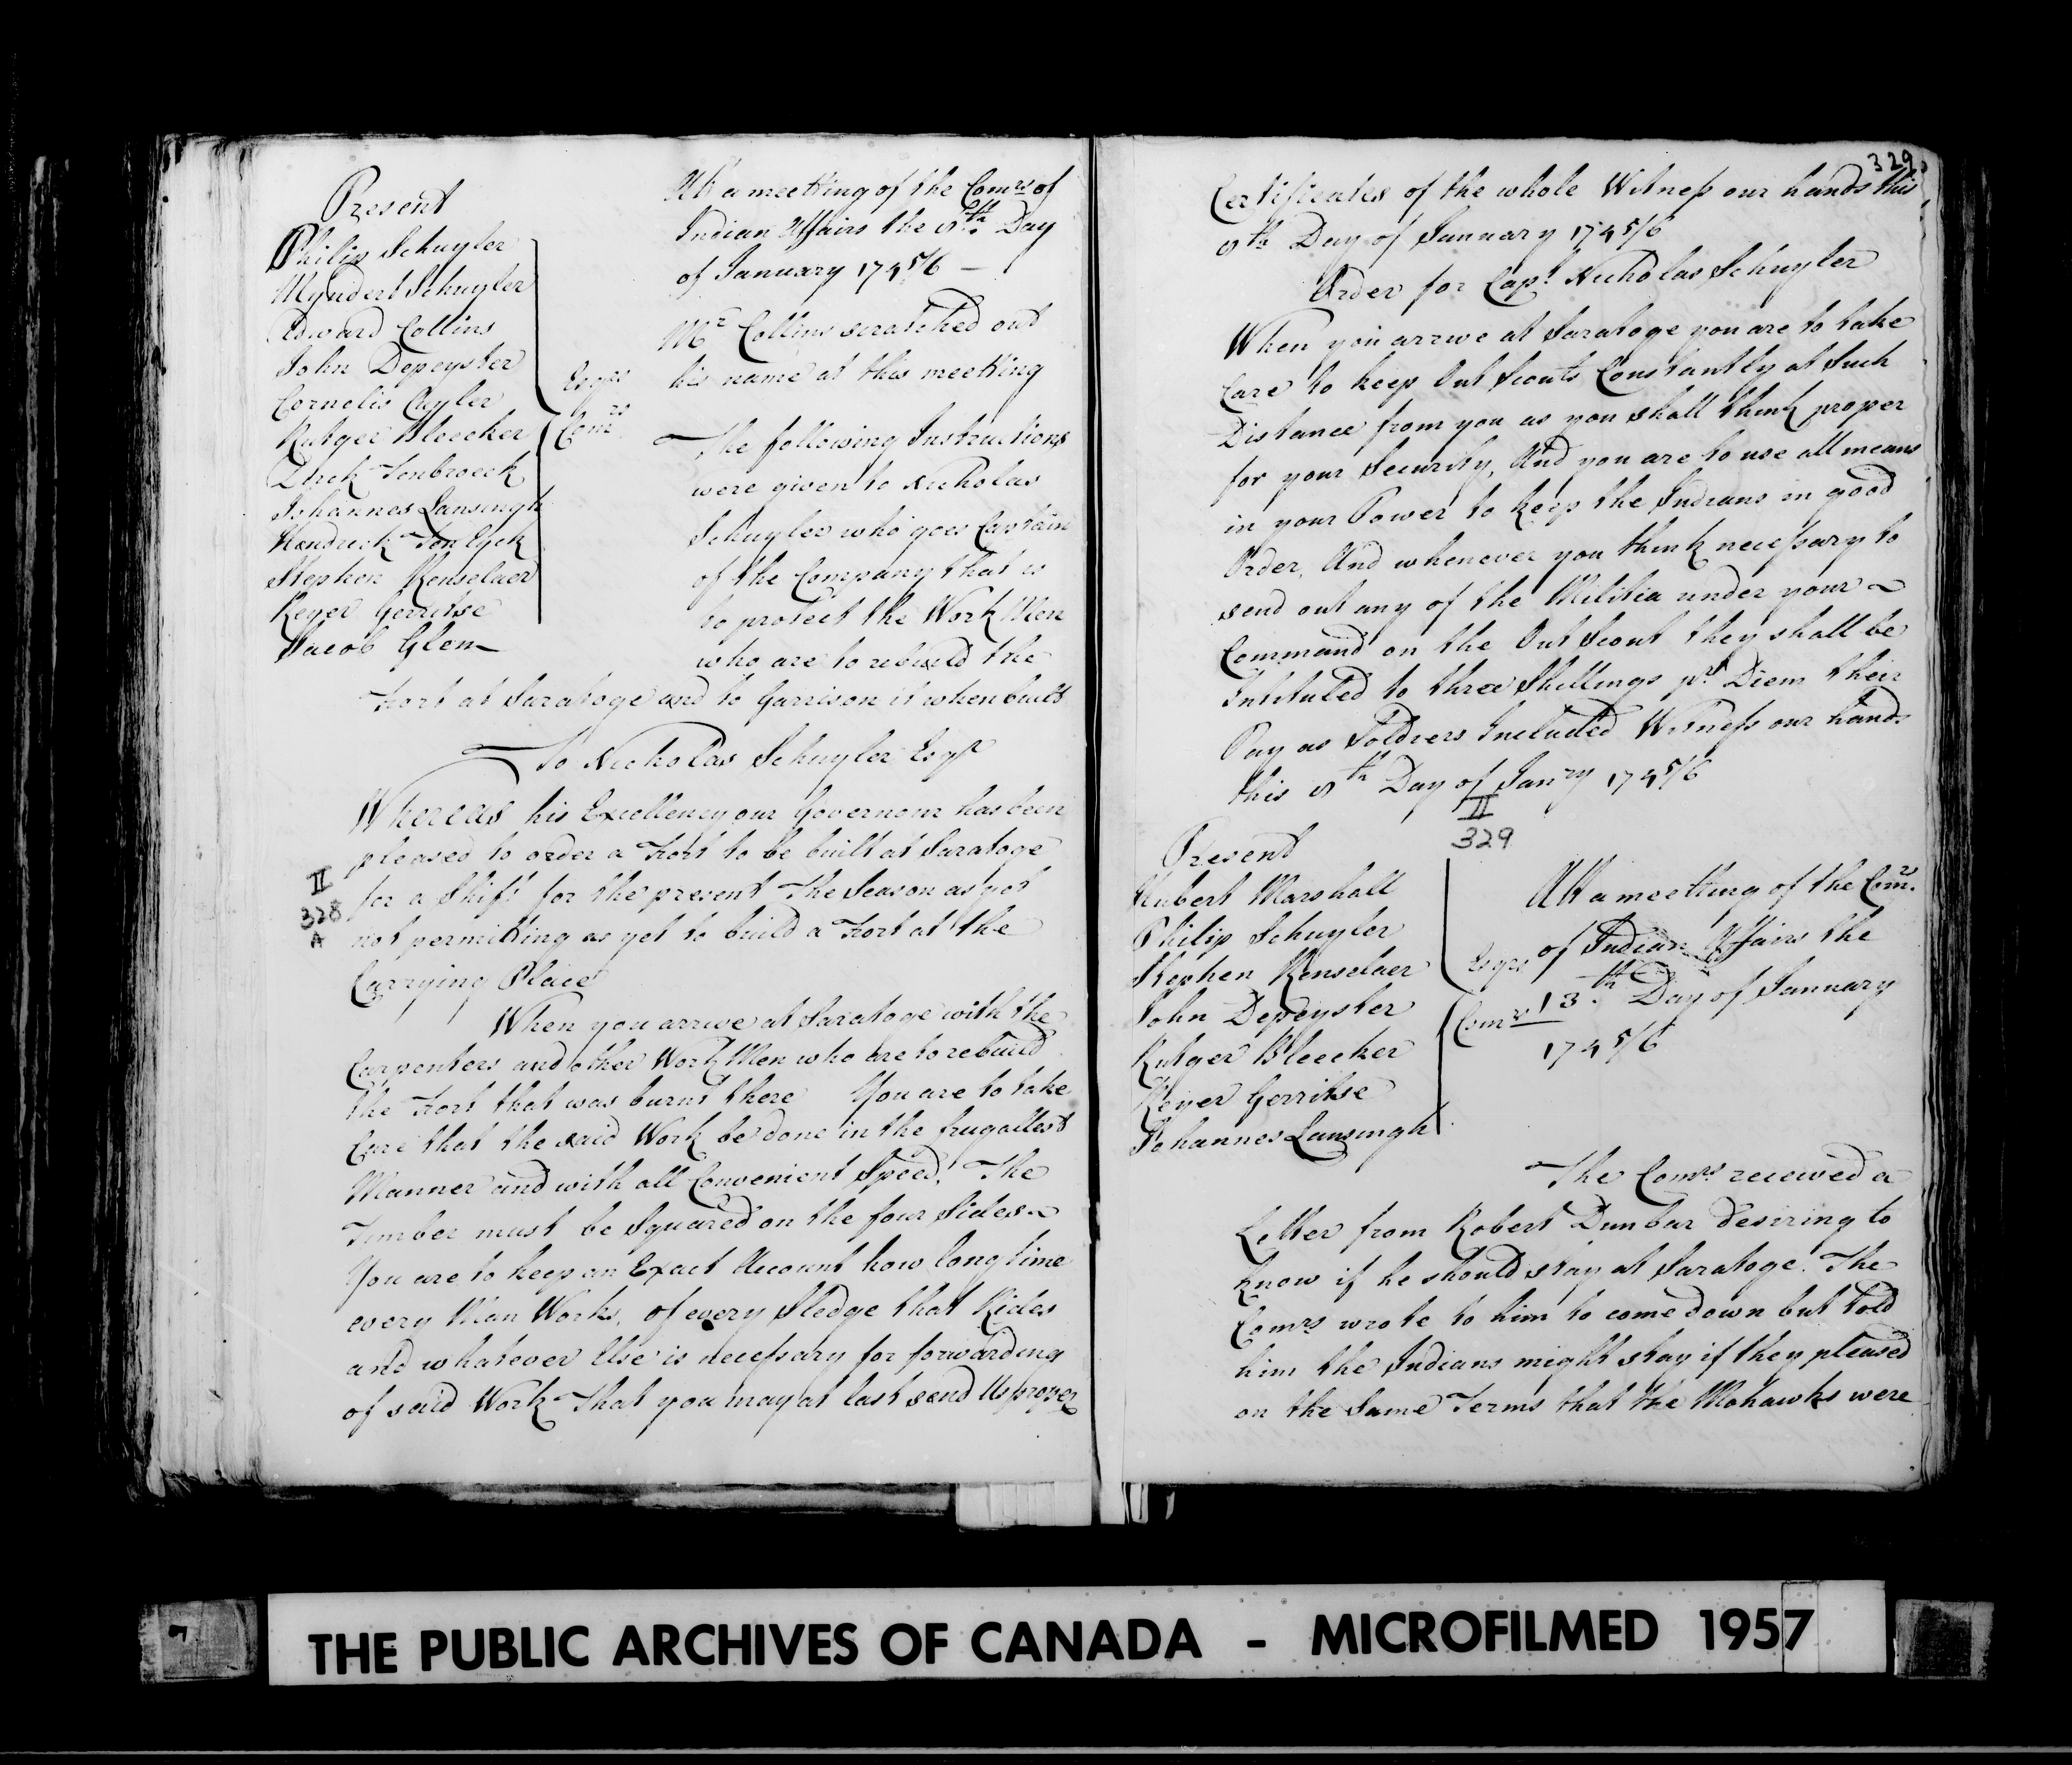 Present
Philip Schuyler
Myndert Schuyler
Edward Collins
John Depeyster
Cornelis Cuyler
Rutger Bleecker
Dirck Tenbroeck
Johannes Lansingh
Hendrick Ten Eyck
Stephen Renselaer
Reyer Gerritse
Jacob Glen
Esqrs
Comrs
Att a meetting of the Comrs of
Indian Affairs the 8th Day
of January 1745/6 —
Mr Collins scratched out
his name at this meeting
The following Instructions
were given to Nicholas
Schuyler who goes Captain
of the Company that is
to protect the Work Men
who are to rebuild the
Fort at Saratoge and to Garrison it when built
To Nicholas Schuyler Esqr
Whereas his Excellency our Governour has been
pleased to order a Fort to be built at Saratoge
for a Shift for the present The Season as yet
not permitting as yet to build a Fort at the
Carrying Place
II
328
A
When you arrive at Saratoge with the
Carpenters and other Work Men who are to rebuild
the Fort that was burnt there You are to take
Care that the said Work be done in the frugallest
Manner and with all Convenient Speed. The
Timber must be Squared on the four Sides
You are to keep an Exact Account how long time
every Man Works, of every Sledge that Rides
and whatever Else is necessary for forwarding
of said Work That you may at last send Us proper
329
Certificates of the whole Witness our hands this
8th Day of January 1745/6
Order for Capt. Nicholas Schuyler
When you arrive at Saratoge you are to take
Care to keep Out Scouts Constantly at Such
Distance from you as you shall think proper
for your Security, And you are to use all means
in your Power to keep the Indians in good
Order, And whenever you think necessary to
send out any of the Militia under your
Command on the Out Scout they shall be
Intituled to three Shillings pr. Diem their
Pay as Soldiers Included Witness our hands
this 8th Day of Janry 1745/6
II
329
Present
Hubert Marshall
Philip Schuyler
Stephen Renselaer
John Depeyster
Rutger Bleecker
Reyer Gerritse
Johannes Lansingh
Esqrs
Comrs
Att a meetting of the Comrs.
of Indian Affairs the
13th Day of January
1745/6
The Comrs received a
Letter from Robert Dunbar desiring to
know if he should stay at Saratoge. The
Comrs wrote to him to come down but told
him the Indians might stay if they pleased
on the Same Terms that the Mohawks were
THE PUBLIC ARCHIVES OF CANADA - MICROFILMED 1957